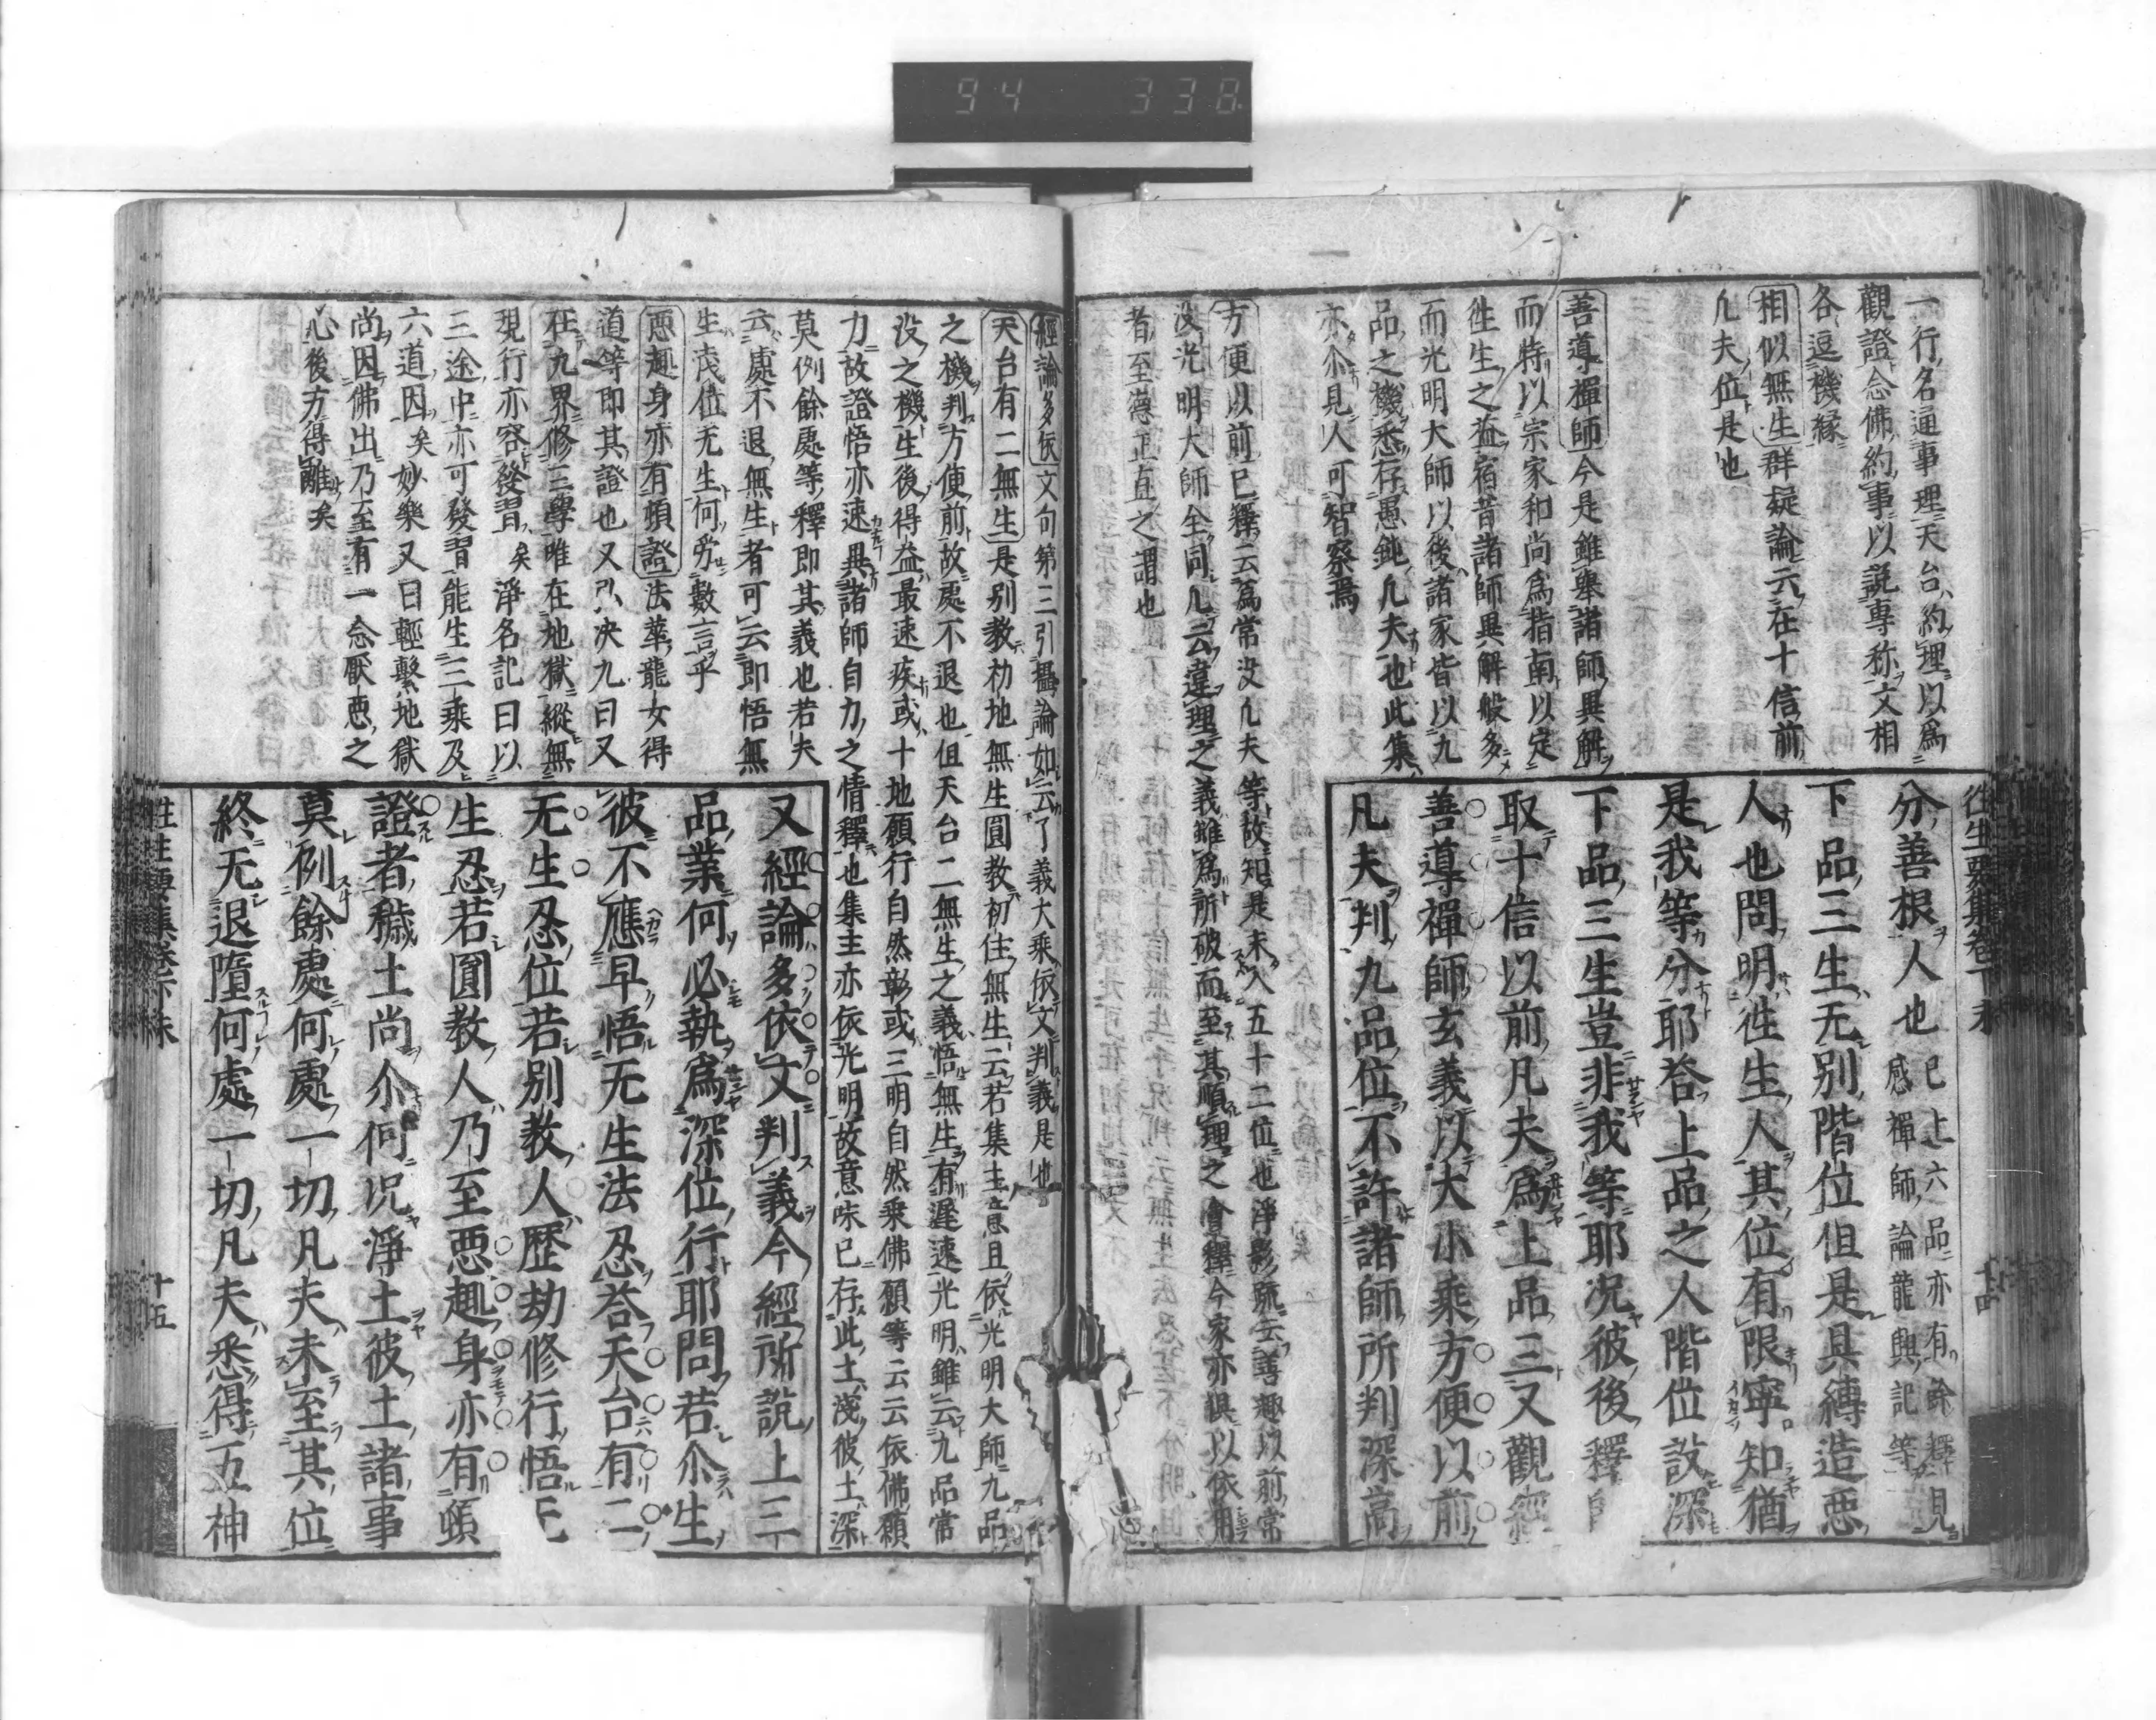 94 338
一行名通事理天台約理以爲
觀證念佛約事以説專称文相
各逗機縁
相似無生群疑論云在十信前
凢夫位是也
善導禪師今是雖舉諸師異解
而特以宗家和尚爲指南以定
徃生之益宿昔諸師異解般多
而光明大師以後諸家皆以九
品之機悉存愚鈍凢夫也此集
亦尒見人可智察焉
方便以前已釋云爲常没凢夫等故知是未入五十二位也淨影疏云善趣以前常
没光明大師全同凢云違理之義雖爲所破而至其順理之會釋今家亦倶以依用
者至德正直之謂也
徃生要集卷下末
十四
分善根人也已上六品亦有餘釋見
感禪師論龍興記等
下品三生无别階位但是具縛造惡
人也問明徃生人其位有限寧知猶
是我等分耶荅上品之人階位設深
下品三生豈非我等耶况彼後釋
取十信以前凡夫爲上品三又觀經
善導禪師玄義以大小乘方便以前
凡夫判九品位不許諸師所判深高
經論多依文句第三引攝論如云了義大乘依文判義是也
天台有二無生是别教初地無生圓教初住無生云若集主意且依光明大師九品
之機判方便前故處不退也但天台二無生之義悟無生有遲速光明雖云九品常
没之機生後得益最速疾或十地願行自然彰或三明自然乗佛願等云云依佛願
力故證悟亦速異諸師自力之情釋也集主亦依光明故意味已存此土淺彼土深
莫例餘處等釋即其義也若夫
云處不退無生者可云即悟無
生浅位无生何労數言乎
惡趣身亦有頓證法華龍女得
道等即其證也又弘决九曰又
在九界修三學唯在地獄縱無
現行亦容發習矣淨名記曰以
三途中亦可發習能生三乘及
六道因矣妙樂又曰輕繫地獄
尚因佛出乃至有一念厭惡之
心後方得離矣
又經論多依文判義今經所説上三
品業何必執爲深位行耶問若尒生
彼不應早悟无生法忍荅天台有二
无生忍位若别教人歴劫修行悟无
生忍若圓教人乃至惡趣身亦有頓
證者穢土尚尒何况淨土彼土諸事
莫例餘處何處一切凡夫未至其位
終无退墮何處一切凡夫悉得五神
徃生要集卷下末
十五